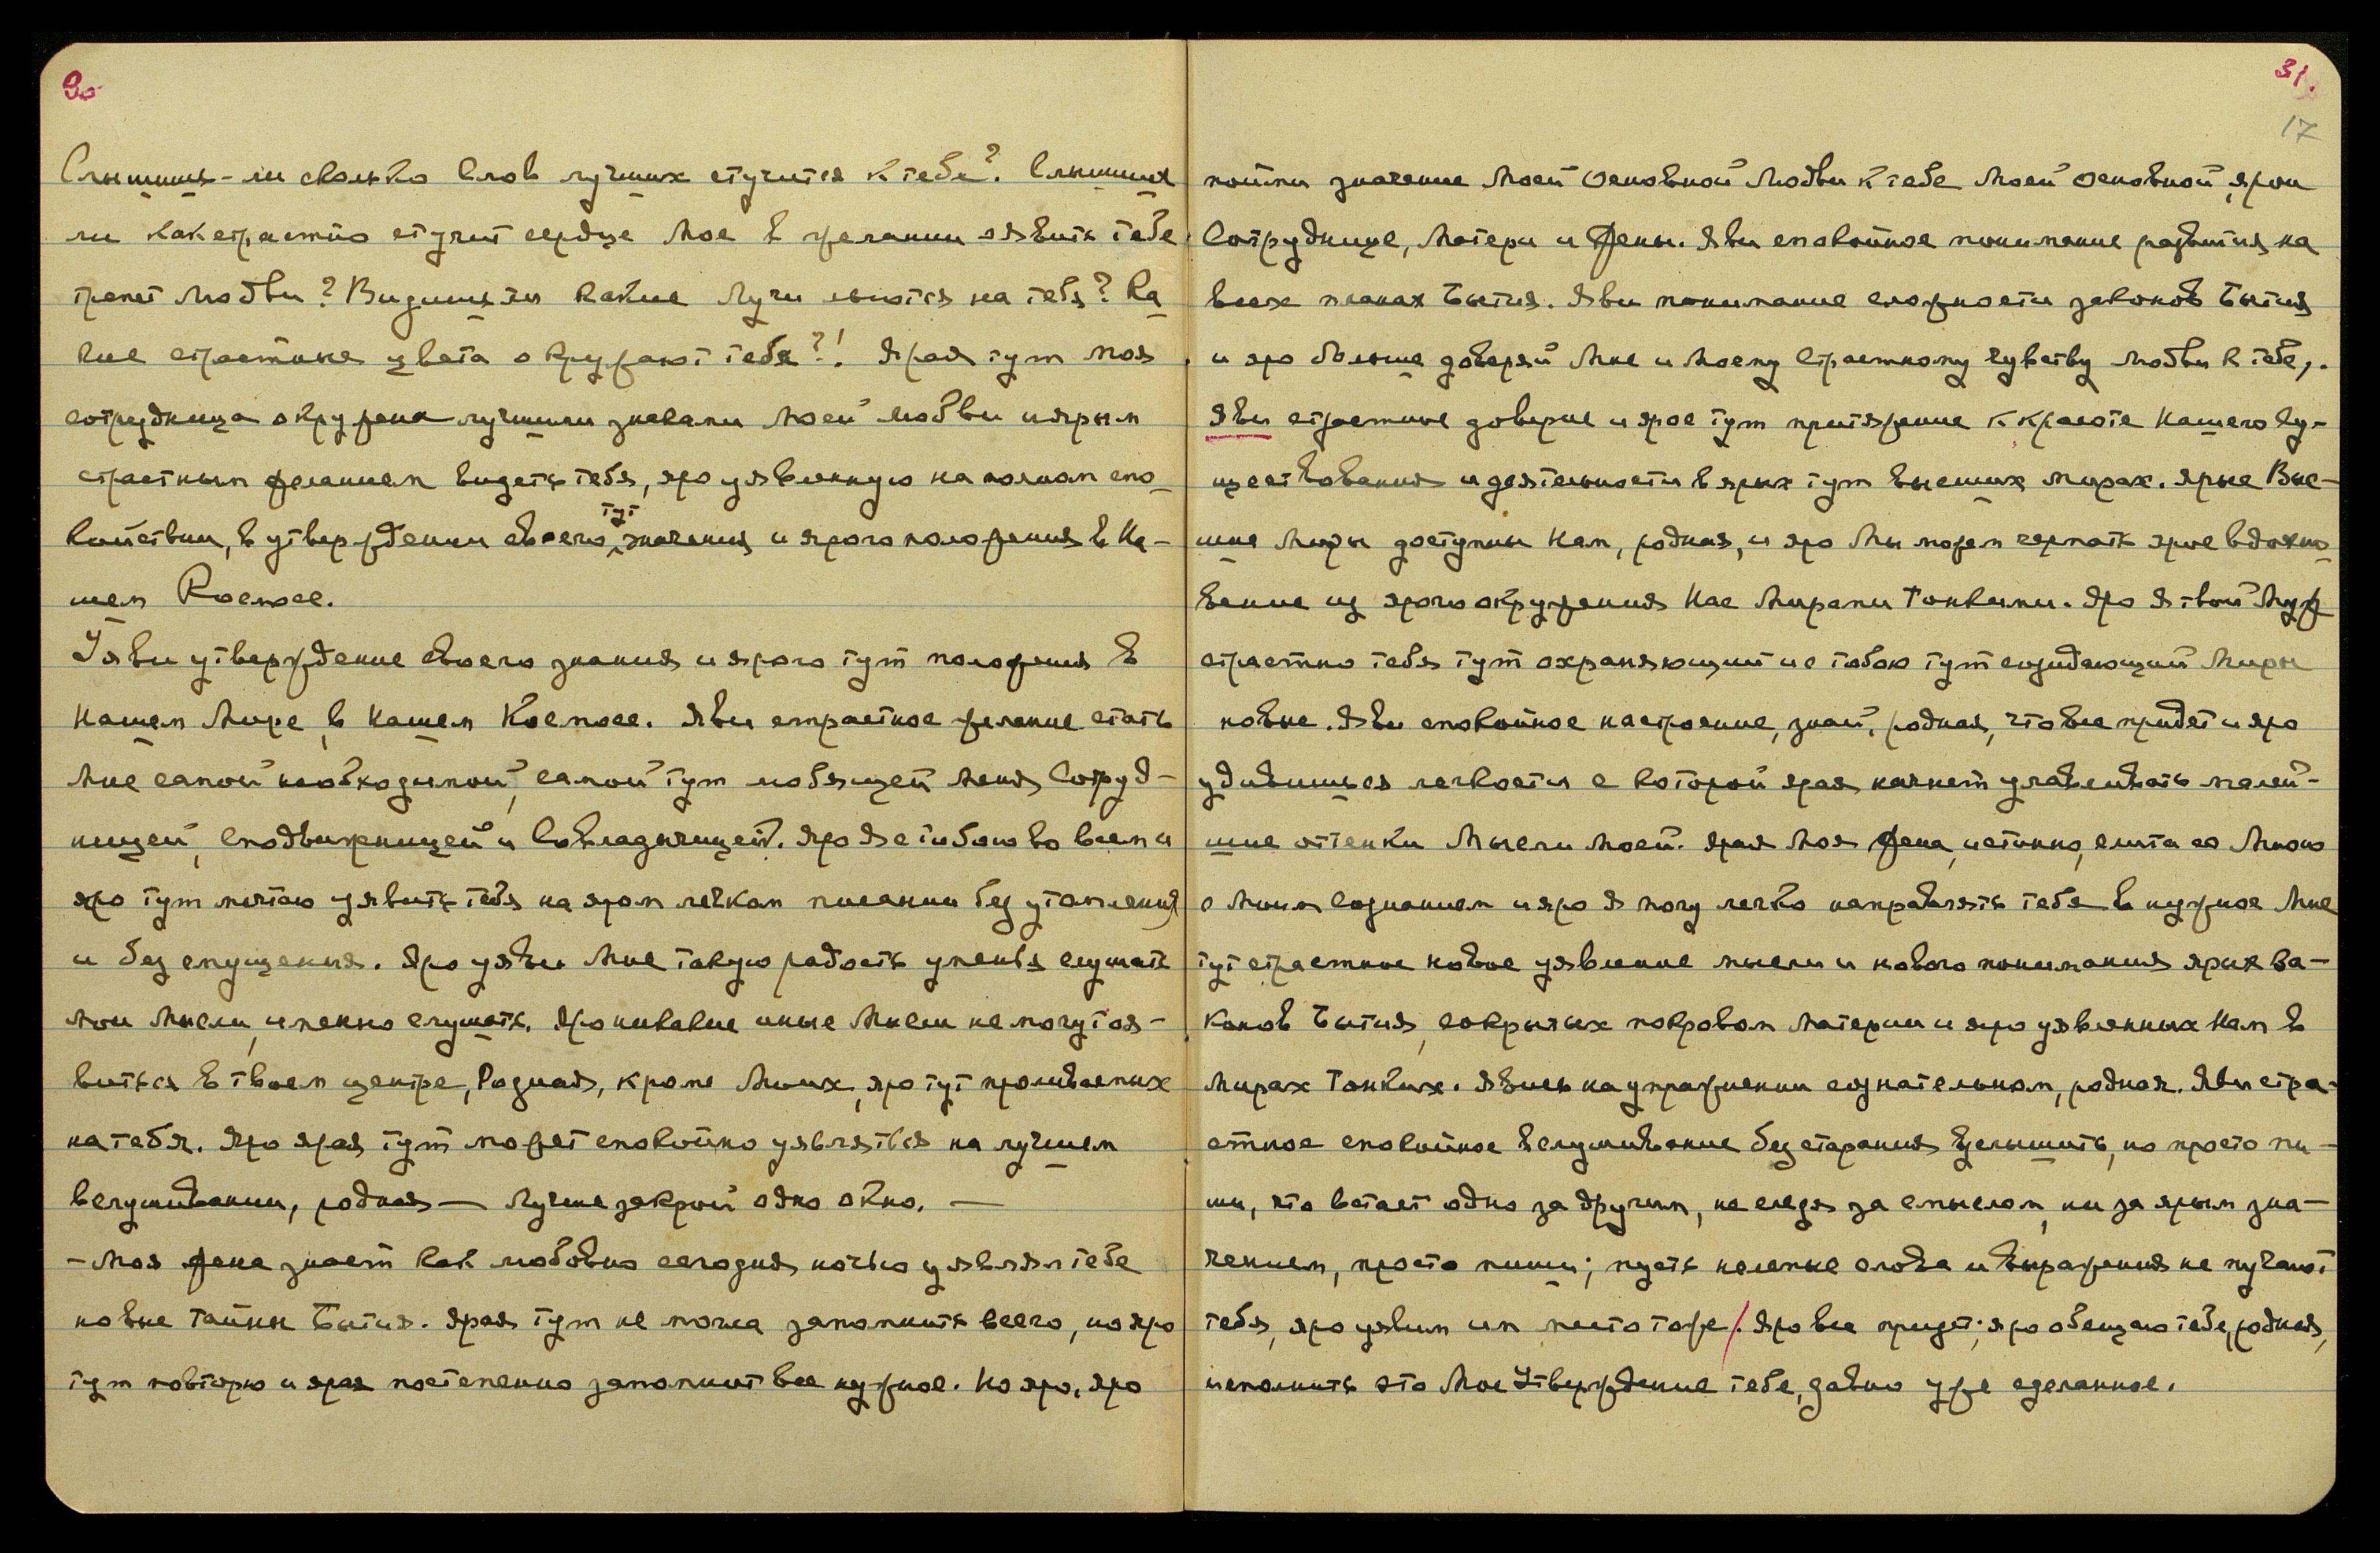 30
Слышишь-ли сколько Слов лучших стучится к тебе? Слышишь
ли как страстно стучит сердце Мое в желании оявить тебе
трепет Любви? Видишь ли какие Лучи льются на тебя? Ка
кие страстные цвета окружают тебя?! Ярая тут моя
сотрудница окружена лучшими знаками Моей Любви и ярым
страстным желанием видеть тебя, яро уявленную на полном спо
койствии, в утверждении своего тут значения и ярого положения в На-
шем Космосе.
Уяви утверждение своего знания и ярого тут положения в
Нашем Мире, в Нашем Космосе. Яви страстное желание стать
Мне самой необходимой, самой тут любящей Меня Сотруд-
ницей, Сподвижницей и Совладычицей. Яро Я с тобою во всем и
яро тут мечтаю уявить тебя на яром легком писании без утомления
и без спущения. Яро уяви Мне такую радость уменья слушать
Мои Мысли, именно слушать. Яро никакие иные Мысли не могут оя-
виться в твоем центре, Родная, кроме Моих, яро тут проливаемых
на тебя. Яро ярая тут может спокойно уявляться на лучшем
вслушивании, родная — Лучше закрой одно окно. —
- Моя жена знает как любовно сегодня ночью уявлял тебе
новые тайны Бытия. Ярая тут не могла запомнить всего, но яро
тут повторю и ярая постепенно запомнит все нужное. Но яро, яро
31.
17
пойми значение Моей Основной Любви к тебе Моей основной, ярой
Сотруднице, Матери и Жены. Яви спокойное понимание развития на
всех планах Бытия. Яви понимание сложности законов Бытия
и яро больше доверяй Мне и Моему Страстному чувству Любви к тебе,.
Яви страстное доверие и ярое тут притяжение к красоте Нашего Су-
ществования и деятельности в ярых тут высших мирах. Ярые Выс-
шие Миры доступны Нам, родная, и яро Мы можем черпать ярое вдохно
вение из ярого окружения Нас Мирами Тонкими. Яро Я твой Муж
страстно тебя тут охраняющий и с тобою тут созидающий Миры
новые. Яви спокойное настроение, знай, родная, что все придет и яро
удивишься легкости с которой ярая начнет улавливать малей-
шие оттенки Мысли Моей. Ярая Моя Жена, истинно, слита со Мною
с Моим Сознанием и яро Я могу легко направлять тебя в нужное Мне
тут страстное новое уявление мысли и нового понимания ярых За-
конов Бытия, сокрытых покровом Материи и яро уявленных Нам в
Мирах Тонких. Явись на упражнении сознательном, родная. Яви стра-
стное спокойное вслушивание без старания услышить, но просто пи-
ши, что встает одно за другим, не следя за смыслом, ни за ярым зна-
чением, просто пиши; пусть нелепые слова и выражения не пугают
тебя, яро уявим им место тоже/. Яро все придет; яро обещаю тебе, родная,
исполнить это Мое Утверждение тебе, давно уже сделанное.